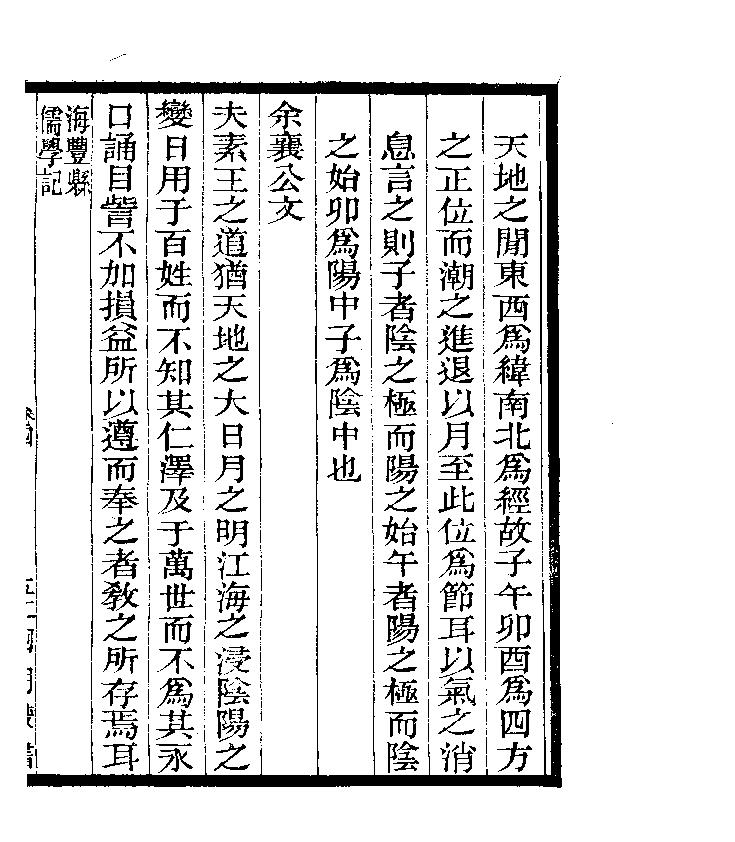 天地之閒東西爲緯南北爲經故子午卯酉爲四方
之正位而潮之進退以月至此位爲節耳以氣之消
息言之則子者陰之極而陽之始午者陽之極而陰
之始卯爲陽中子爲陰中也
余襄公文
夫素王之道猶天地之大日月之明江海之浸陰陽之
變日用于百姓而不知其仁澤及于萬世而不爲其永
口誦目訾不加損益所以遵而奉之者教之所存焉耳
海豐縣
儒學記